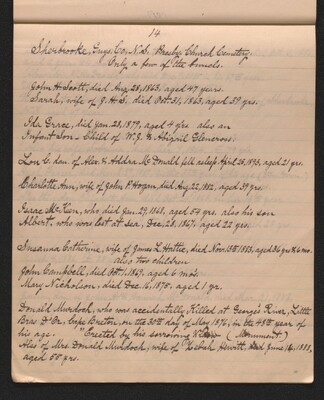 14
Sherbrooke, Guys. Co., N.S. Presby. Church Cemetery
Only a few of the burials.
John H. Scott, died Aug. 28, 1865, aged 47 years.
Sarah, wife of J. H. S. died Oct. 31, 1865, aged 59 yrs.
Ida Grace, died Jan. 28, 1879, aged 4 yrs also an
Infant Son - Child of W. J. & Abigail Glencross.
Lon C. son of Alex. & Addra McDonald fell asleep April 28, 1895, aged 21 yrs.
Charlotte Ann, wife of John P. Hogan died Aug. 22, 1882, aged 39 yrs.
Isaac McKeen, who died Jan. 29, 1868, aged 54 yrs also his son
Albert, who was lost at sea, Dec. 28, 1867, aged 22 yrs.
Susanna Catherine, wife of James L. Hattie, died Nov. 13th 1883, aged 36 yrs & 6 mo.
also two children
John Campbell, died Oct. 1, 1869, aged 6 mo's
Mary Nicholson, died Dec. 16, 1875, aged 1 yr.
Donald Murdoch, who was accidentally Killed at George's River, Little
Bras D'Or, Cape Breton, on the 30th day of May 1876, in the 48th year of
his age. "Erected by his sorrowing (Monument.)
Also of Mrs Donald Murdoch, wife of Hewitt, died June 14, 1888,
aged 50 yrs.